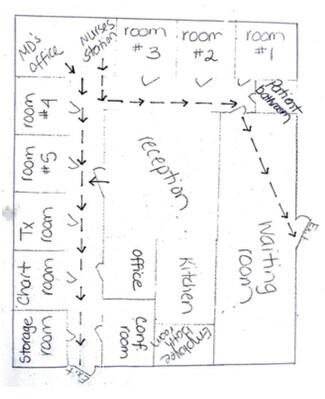 MD's
office
Nurses
station
room
#3
room
#2
room
#1
Patient
bathroom
room
#4
room
#5
Tx
room
Chart
room
Storage
room
reception
office
conf
room
Kitchen
Employee
bathroom
Waiting
room
Exit
Exit